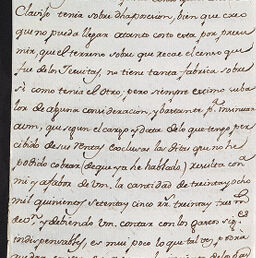 Clavijo tenia sobre dha posecion, bien que creo
que no pueda llegar a tanto coste esta por presu
mir, que el terreno sobre que recae el censo que
fue de los Jesuitas, no tiene tanta fabrica sobre
si como tenia el otro, pero siempre estimo uba
lor de alguna consideracion, y bastante pa
aun, que segun el cargo y data de lo que tengo per
cibido de sus rentas exclusas las ditas que no he
podido cobrar (de que ya he hablado) resulta con
mi y a fabor de Vm. la cantidad de treinta y ocho
mil quinientos setenta y cinco rs. treinta y tres ms
de von. y debiendo Vm. contar con los gastos
indispensables, es muy poco lo que tal vez podria